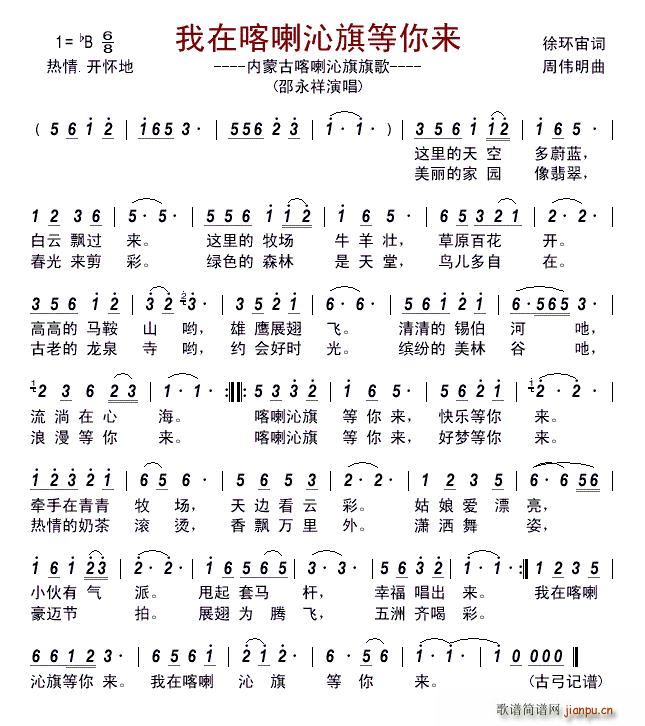 1= ♭B 6/8
我在喀喇沁旗等你来
徐环宙词
热情.开怀地
----内蒙古喀喇沁旗旗歌----
周伟明曲
(邵永祥演唱)
( 5 6 1 2 | 1 6 5 3 · | 5 5 6 2 3 | 1 · 1 · ) | 3 5 6 1 1 2 | 1 6 5 · |
这里的天空 多蔚蓝，
美丽的家园 像翡翠，
1 2 3 6 | 5 · 5 · | 5 5 6 1 1 2 | 1 6 5 · | 6 5 3 2 1 | 2 · 2 · |
白云飘过 来。 这里的牧场 牛羊壮， 草原百花 开。
春光来剪 彩。 绿色的森林 是天堂， 鸟儿多自 在。
3 5 6 1 2 | 3 2 3 · | 6 3 5 2 1 | 6 · 6 · | 5 6 5 1 2 | 6 · 5 6 5 |
高高的马鞍 山哟， 雄鹰展翅 飞。 清清的锡伯 河吔，
古老的龙泉 寺哟， 约会好时 光。 缤纷的美林 谷吔，
2 3 6 2 3 | 1 · 1 · :||: 5 3 2 1 | 1 6 5 · | 3 5 6 1 | 2 · 2 · |
流淌在心 海。 喀喇沁旗 等你来， 快乐等你 来。
浪漫等你 来。 喀喇沁旗 等你来， 好梦等你 来。
1 2 3 2 1 | 6 5 · | 5 6 5 3 | 5 · 5 · | 2 3 5 5 | 6 · 6 5 6 |
牵手在青青 牧场， 天边看云 彩。 姑娘爱漂 亮，
热情的奶茶 滚烫， 香飘万里 外。 潇洒舞 姿，
1 6 1 2 3 | 2 · 2 · | 1 2 1 6 5 | 3 · 3 · | 5 5 6 3 2 | 1 · 1 · :| 1 2 1 6 5 |
小伙有气 派。 甩起套马 杆， 幸福唱出 来。 我在喀喇
豪迈节 拍。 展翅为腾 飞， 五洲齐喝 彩。
6 6 1 2 3 · | 6 5 6 1 | 2 · 2 · | 6 1 2 2 | 1 · 1 · | 1 0 0 0 ||
沁旗等你 来。 我在喀喇 沁旗 等你 来。 (古弓记谱)
歌谱简谱网
jianpu.cn